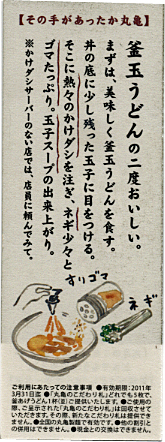 【その手があったか丸亀】
釜玉うどんの二度おいしい。
まずは、美味しく釜玉うどんを食す。
丼の底に少し残った玉子に目をつける。
そこに熱々のかけダシを注ぎ、ネギ少々と
ゴマたっぷり。玉子スープの出来上がり。
※かけダシサーバーのない店では、店員に頼んでみて。
すりゴマ
ネギ
ご利用にあたっての注意事項 ●有効期限:2011
年3月31日迄 ●「丸亀のこだわり札」どれでも5枚で、
釜あげうどん1杯(並)ご提供いたします。●ご使用の
際、ご呈示された「丸亀のこだわり札」は回収させてい
ただきます。その際、新たなこだわり札は提供でき
ません。●全国の丸亀製麺で有効です。●他の割引と
の併用はできません。●現金との交換はできません。